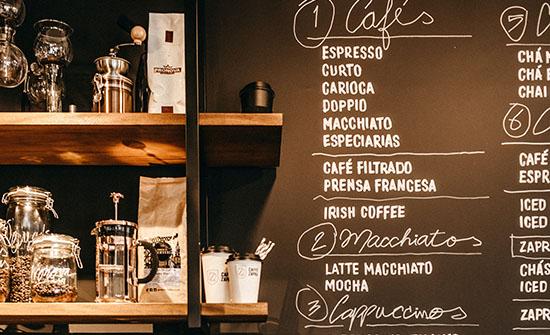 1 Cafés
ESPRESSO
CURTO
CARIOCA
DOPPIO
MACCHIATO
ESPECIARIAS
CAFÉ FILTRADO
PRENSA FRANCESA
IRISH COFFEE
2 Macchiatos
LATTE MACCHIATO
MOCHA
3 Cappuccinos
5 C
CHÁ
CHÁ
CHAI
6
CAFÉ
ESPR
ICED
ICED
ZAPR
CHÁS
ICED
ZAPR